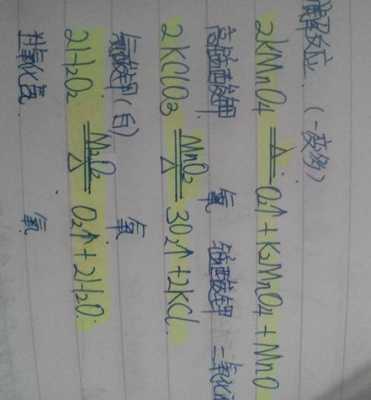 解反应 (一变多)
2KMnO₄ =△= O₂↑+K₂MnO₄+MnO
高锰酸钾 氧 锰酸钾 二氧化
2KClO₃ =MnO₂/△= 3O₂↑+2KCl
氯酸钾(白) 氧
2H₂O₂ =MnO₂/△= O₂↑+2H₂O
过氧化氢 氧